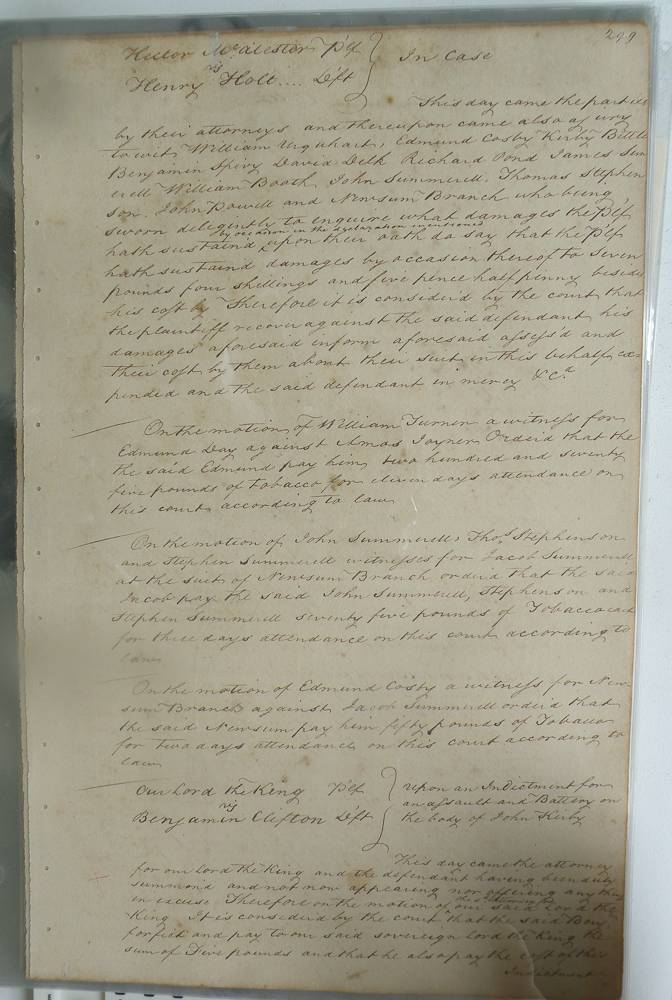 299
Hector McAlester Plf } In Case
vs
Henry Holt .... Deft
This day came the parties
by their attorneys and thereupon came also a jury
to wit, William Urquhart, Edmund Cosby Kirby Bittle
Benjamin Spivy David Delk Richard Pond James Sum
erell William Booth John Summerell. Thomas Stephen
son. John Powell and Newsum Branch who being
sworn deligently to enquire what damages the Plf
by occasion in the declaration mentioned
hath sustain'd upon their oath do say that the Plf
hath sustaind damages by occasion thereof to seven
pounds four shillings and five pence half penny besides
his cost by Therefore it is considerd by the court that
the plaintiff recover against the said defendant his
damages aforesaid inform aforesaid assess'd and
their cost by them about their suit in this behalf ex=
pended and the said defendant in mercy &C.a
On the motion of William Turner a witness for
Edmund Day against Amos Joyner Orderd that the
the said Edmund pay him two hundred and seventy
five pounds of tobacco for eleven days attendance on
this court according to law
On the motion of John Summerell, Thos Stephenson
and Stephen Summerell witnesses for Jacob Summerell
at the suit of Newsum Branch orderd that the said
Jacob pay the said John Summerell, Stephenson and
Stephen Summerell seventy five pounds of Tobacco each
for three days attendance on this court according to
law
On the motion of Edmund Cosby a witness for New-
sum Branch against Jacob Summerell orderd that
the said Newsum pay him fifty pounds of Tobacco
for two days attendance on this court according to
law
Our Lord the King Plf } Upon an Indictment for
vs an assault and Battery on
Benjamin Clifton Deft the body of John Kirby
This day came the attorney
for our lord the King and the defendant having been duly
summond and not now appearing nor offering any thing
in excuse Therefore on the motion of our said Lord the
King It is considerd by the court that the said Benj
forfeit and pay to our said sovereign lord the King the
sum of Five pounds and that he also pay the cost of this
Indictment